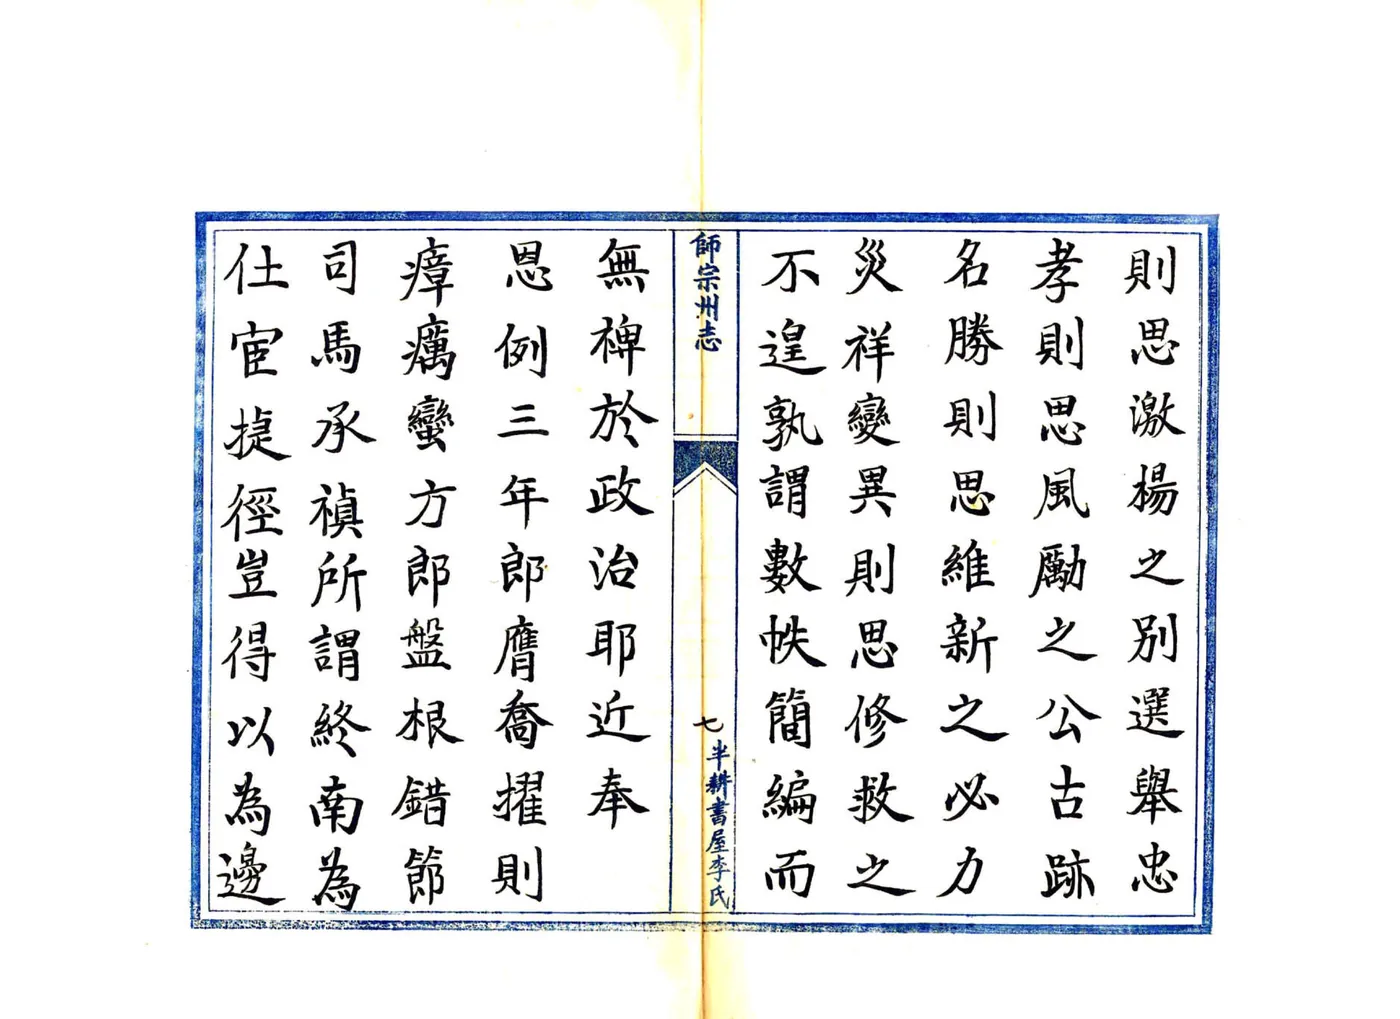 則思激揚之別選舉忠
孝則思風勵之公古跡
名勝則思維新之必力
災祥變異則思修救之
不遑孰謂數帙簡編而
師宗州志
七
半耕書屋李氏
無裨於政治耶近奉
恩例三年郎膺喬擢則
瘴癘蠻方郎盤根錯節
司馬承禎所謂終南為
仕宦捷徑豈得以為邊